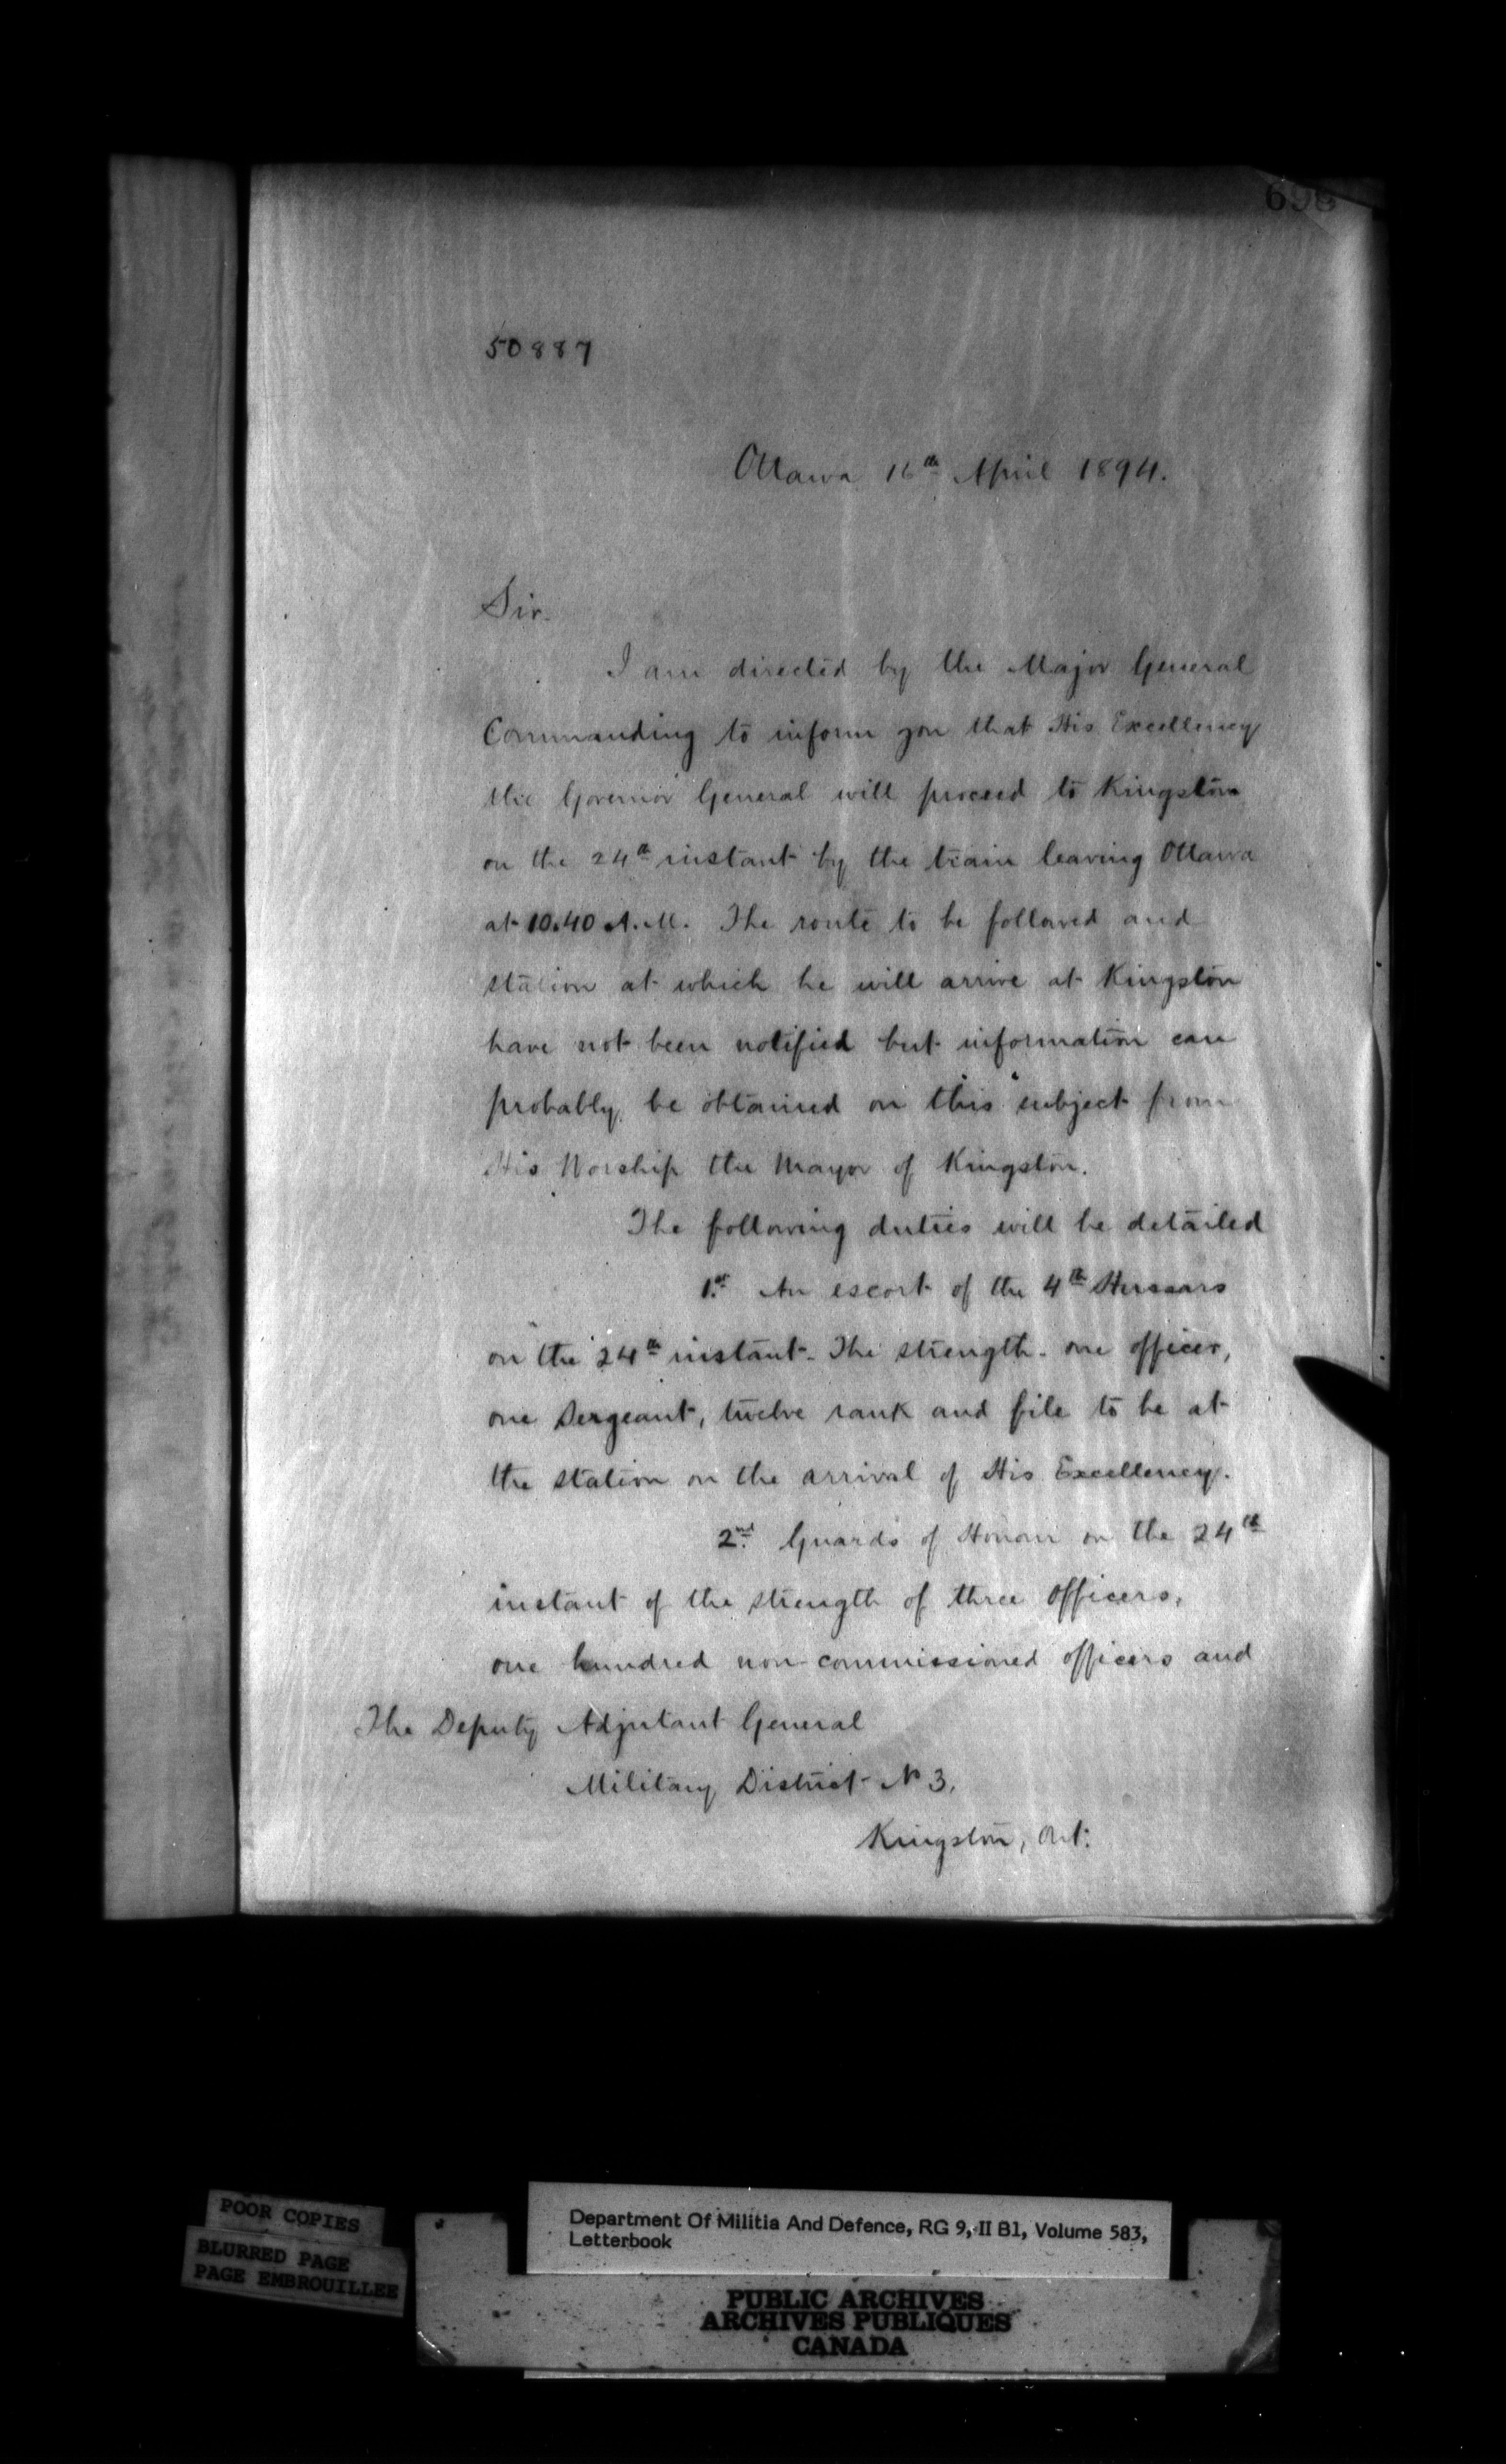 50887
Ottawa 16th April 1894.
Sir.
I am directed by the Major General
Commanding to inform you that His Excellency
the Governor General will proceed to Kingston
on the 24th instant by the train leaving Ottawa
at 10.40 A.M. The route to be followed and
station at which he will arrive at Kingston
have not been notified but information can
probably be obtained on this subject from
His Worship the Mayor of Kingston.
The following duties will be detailed
1st An escort of the 4th Hussars
on the 24th instant. The strength - one officer,
one Sergeant, twelve rank and file to be at
the station on the arrival of His Excellency.
2nd Guards of Honour on the 24th
instant of the strength of three officers,
one hundred non-commissioned officers and
The Deputy Adjutant General
Military District No 3.
Kingston, Ont.
POOR COPIES
BLURRED PAGE
PAGE EMBROUILLEE
Department Of Militia And Defence, RG 9, II B1, Volume 583,
Letterbook
PUBLIC ARCHIVES
ARCHIVES PUBLIQUES
CANADA